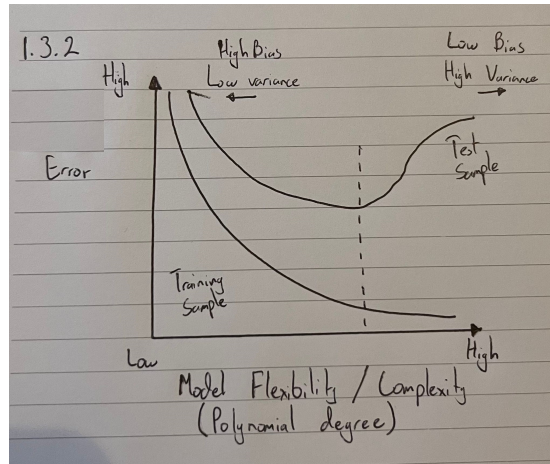 1.3.2
High Bias
Low variance
←
Low Bias
High Variance
→
High
Error
Test
Sample
Training
Sample
Low
High
Model Flexibility / Complexity
(Polynomial degree)